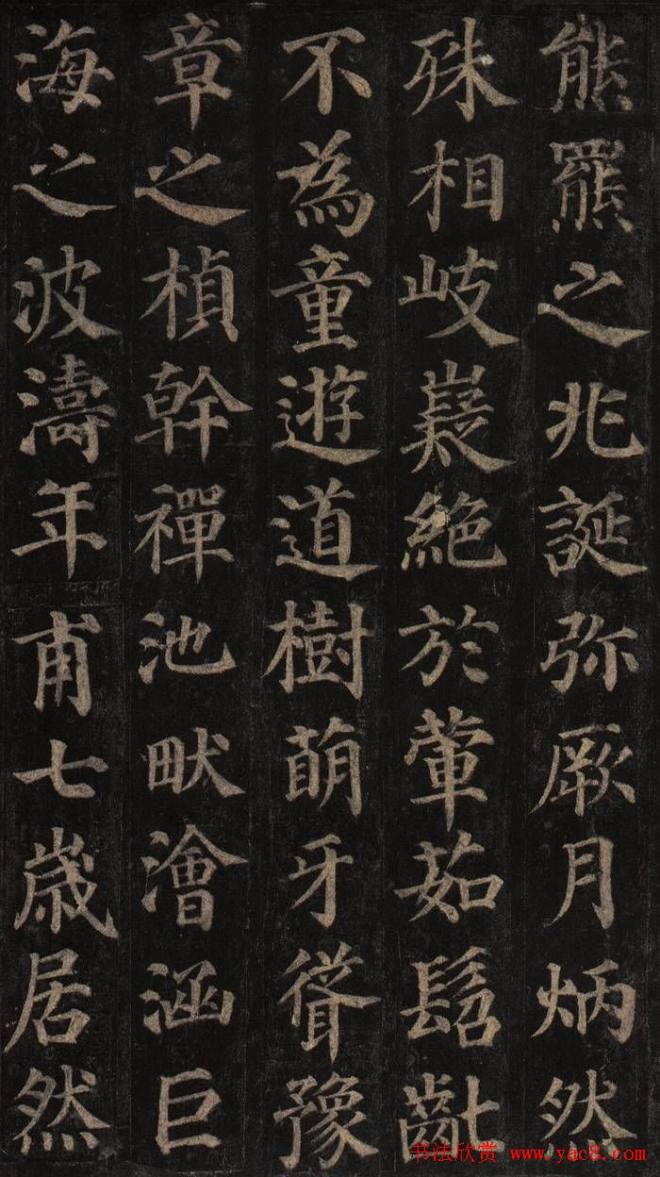 熊羆之兆誕弥厥月炳然
殊相岐嶷絶於葷茹髫齔
不為童遊道樹萌牙聳豫
章之楨幹禪池畎澮涵巨
海之波濤年甫七歲居然
书法欣赏 www.yac8.com